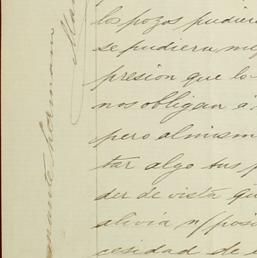 los pozos pudier
se pudiera mej
presion que lo
nos obligan á
pero al mism
tar algo tus p
der de vista qu
alivia n/ posi
cesidad de
amante hermano
Man